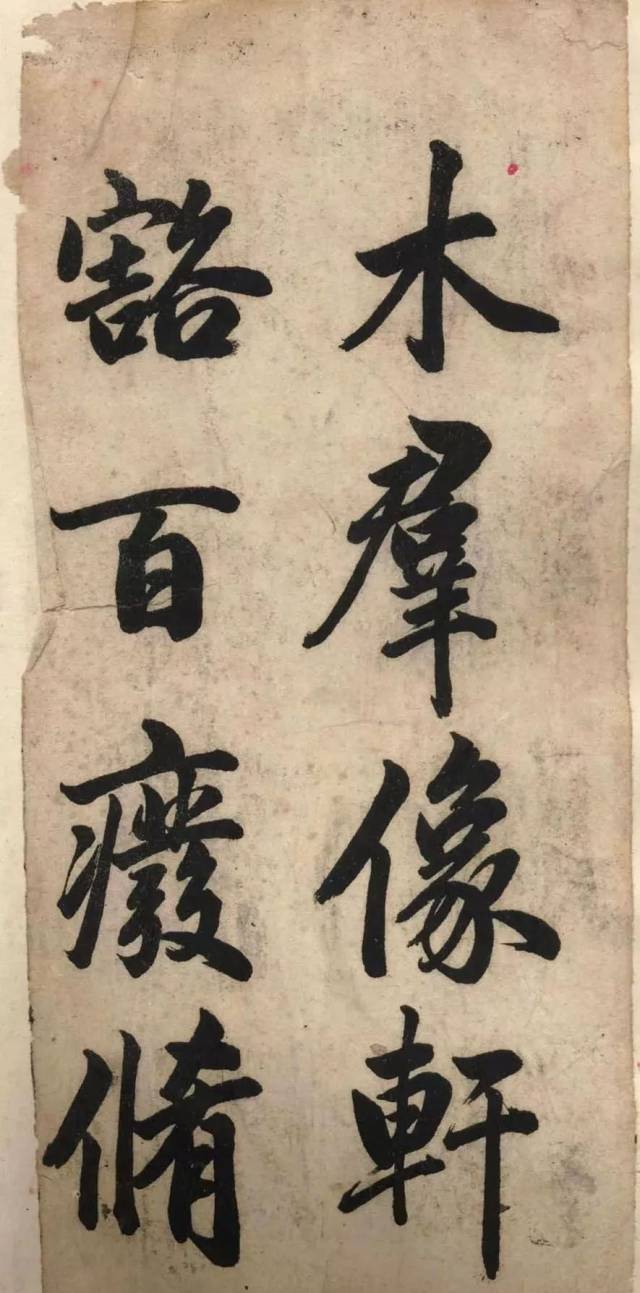 木羣像軒
豁百癈脩